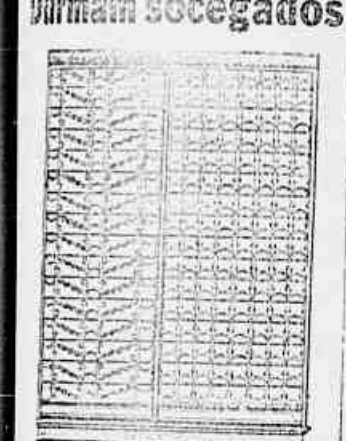 Durmam socegados